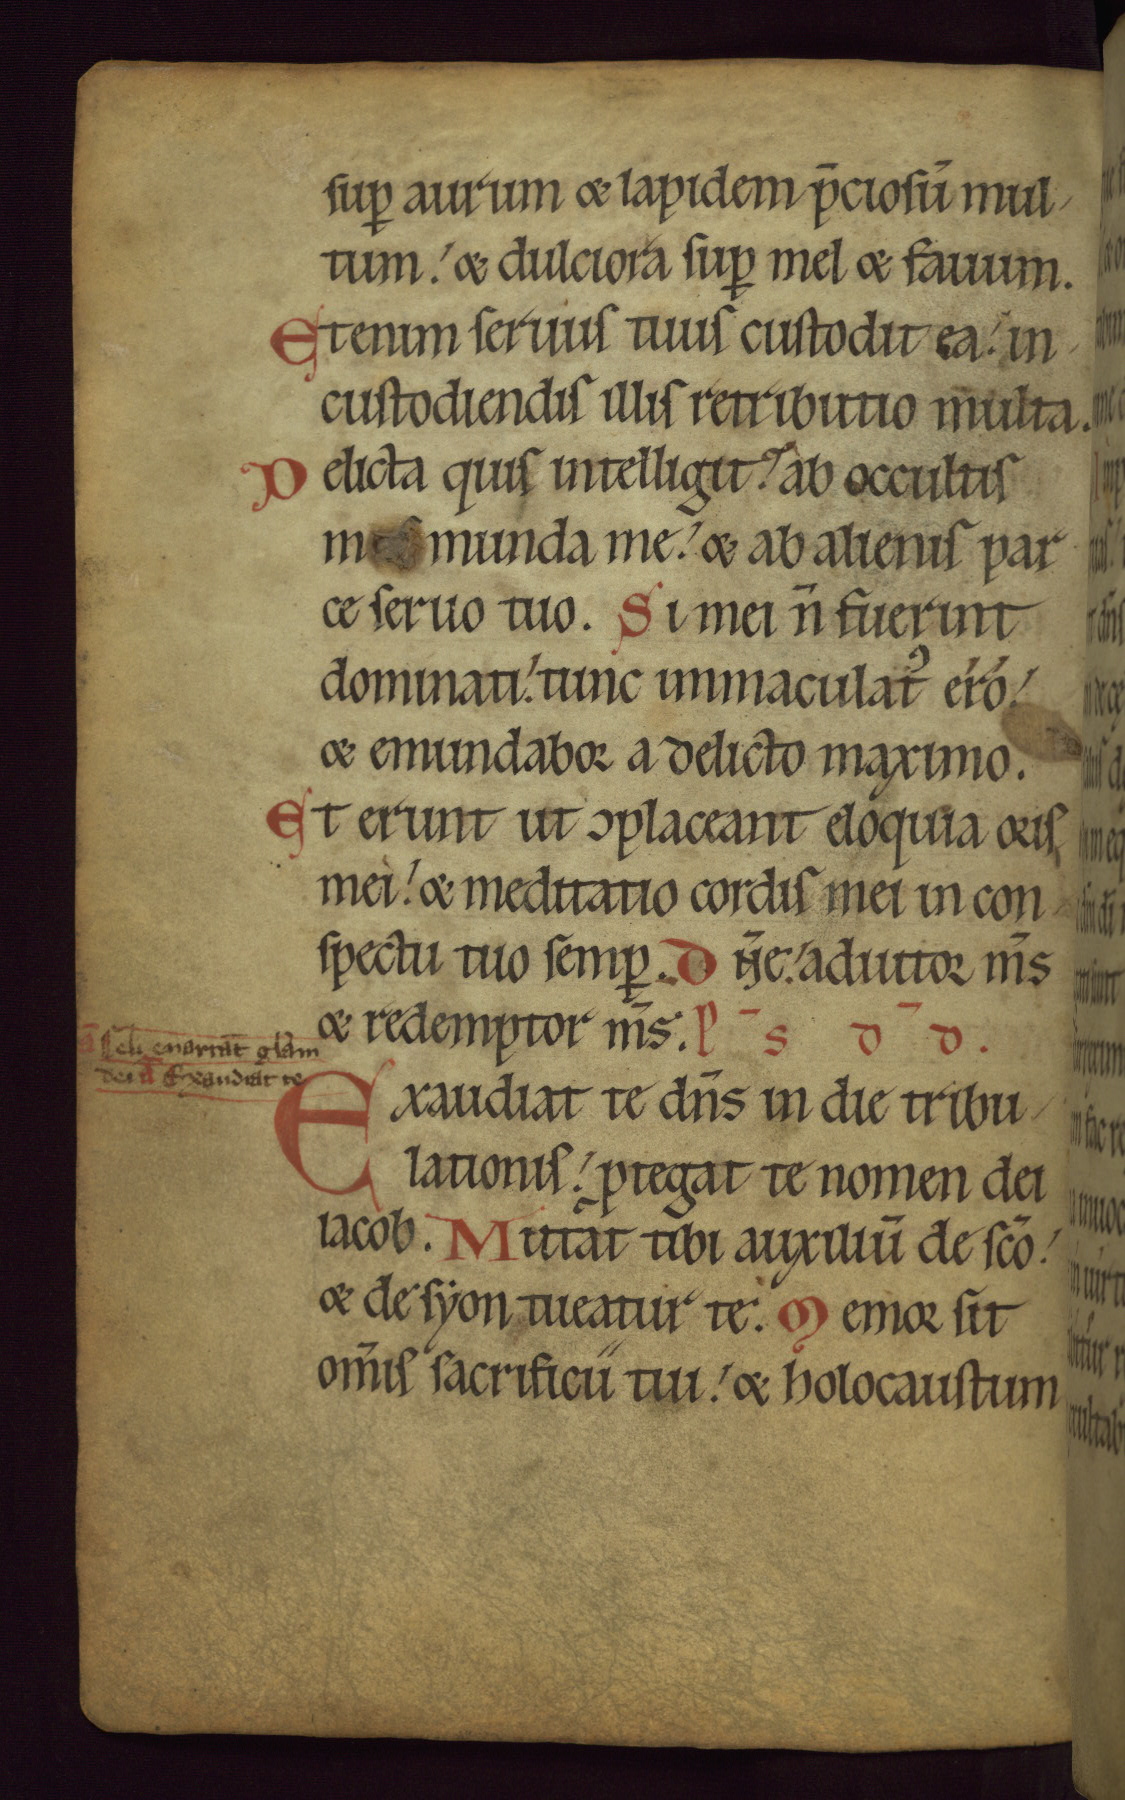 sup aurum & lapidem p̄ciosū mul
tum. & dulciora sup mel & fauum.
Etenim seruus tuus custodit ea. in
custodiendis illis retributio multa.
Delicta quis intelligit? ab occultis
meis munda me. & ab alienis par
ce seruo tuo. Si mei n̄ fuerint
dominati. tunc immaculat᷒ ero.
& emundabor a delicto maximo.
Et erunt ut ↄplaceant eloquia oris
mei. & meditatio cordis mei in con
spectu tuo semp. Dn̄e. adiutor m̄s
& redemptor m̄s. p̄ s d̄ d.
Celi enarrāt gl̄am
dei Exaudiat te
Exaudiat te dn̄s in die tribu
lationis. ptegat te nomen dei
iacob. Mittat tibi auxiliū de sc̄o.
& de syon tueatur te. Memor sit
om̄is sacrificii tui. & holocaustum